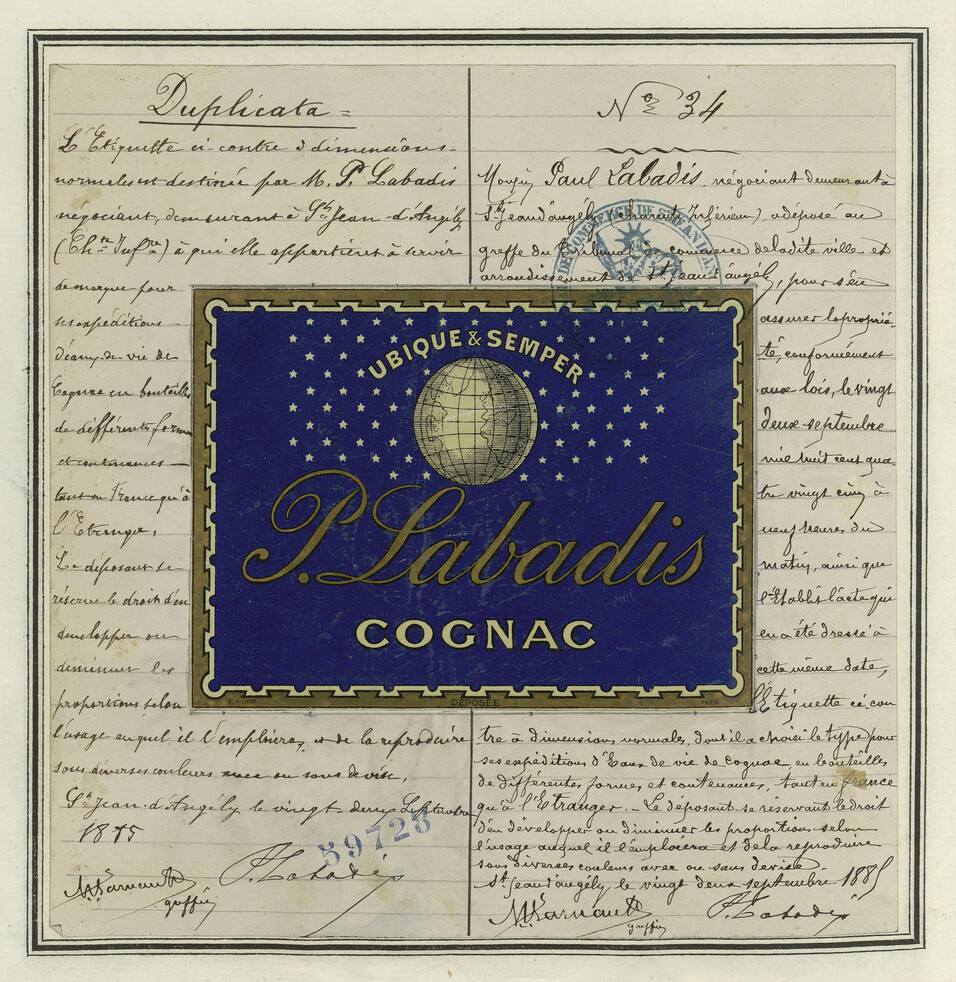 Duplicata
L'Etiquette ci-contre à dimensions
normales est destinée par M. P. Labadis
négociant, demeurant à St Jean-d'Angély
(Chte Infre) à qui elle appartient à servir
de marque pour
ses expéditions
d'eaux-de-vie de
Cognac en bouteilles
de différentes formes
et contenances
tant en France qu'à
l'Etranger.
Le déposant se
réserve le droit d'en
développer ou
diminuer les
proportions selon
l'usage auquel il l'emploiera, et de la reproduire
sous diverses couleurs avec ou sans devise.
St Jean-d'Angély le vingt deux Septembre
1885
59723
P. Labadis
greffier
No 34
Paul Labadis, négociant demeurant à
St Jean d'angély (Charente Inférieure), a déposé au
greffe du Tribunal de commerce de ladite ville et
arrondissement de St Jean d'angély, pour s'en
assurer la proprié
té, conformément
aux lois, le vingt
deux septembre
mil huit cent qua
tre vingt cinq à
neuf heures du
matin, ainsi que
l'établit l'acte qui
en a été dressé à
cette même date,
l'Etiquette ci-con
tre à dimensions normales, dont il a choisi le type pour
ses expéditions d'Eaux de vie de Cognac, en bouteilles
de différentes formes et contenances, tant en france
qu'à l'Etranger. - Le déposant se réservant le droit
d'en développer ou diminuer les proportions selon
l'usage auquel il l'emploiera et de la reproduire
sous diverses couleurs avec ou sans devise
St Jean d'angély, le vingt deux septembre 1885
greffier
P. Labadis
UBIQUE & SEMPER
P. Labadis
COGNAC
DÉPOSÉE
PARIS